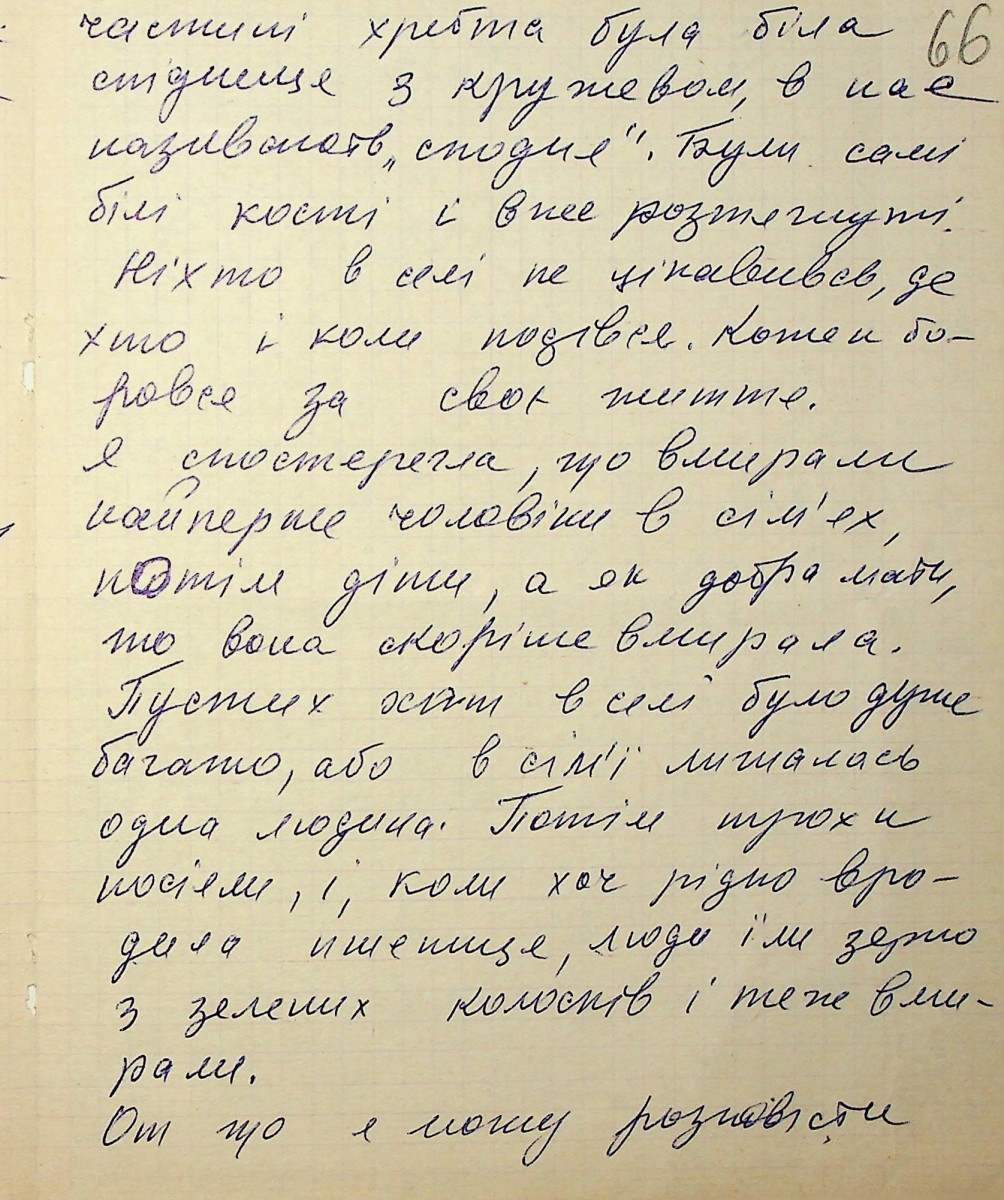 66
частині хребта була біла
спідниця з кружевом, в нас
називають „сподня". Були самі
білі кості і вже розтягнуті.
Ніхто в селі не цікавився, де
хто і коли подівся. Кожен бо-
ровся за своє життя.
Я спостерегла, що вмирали
найперше чоловіки в сім'ях,
потім діти, а як добра мати,
то вона скоріше вмирала.
Пустих хат в селі було дуже
багато, або в сім'ї лишалась
одна людина. Потім трохи
посіяли, і, коли хоч рідно вро-
дила пшениця, люди їли зерно
з зелених колосків і теж вми-
рали.
От що я можу розповісти